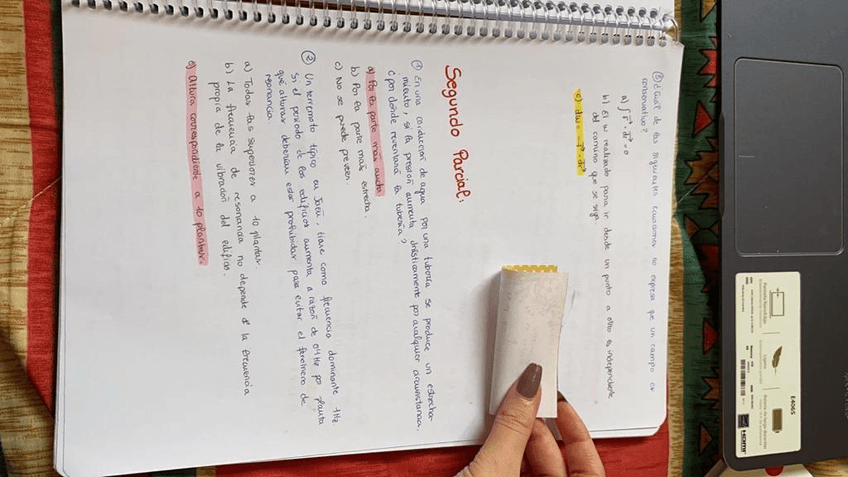 ⑤ ¿Cuál de las siguientes ecuaciones no expresa que un campo es
conservativo?
a) ∫ F · dr = 0
b) El W realizado para ir desde un punto a otro es independiente
del camino que se siga.
c) dW = - F · dr
Segundo Parcial:
① En una conducción de agua por una tubería se produce un estrecha-
miento, si la presión aumenta drásticamente por cualquier circunstancia,
¿por dónde reventaría la tubería?
a) Por la parte más ancha.
b) Por la parte más estrecha.
c) No se puede preveer.
② Un terremoto típico en Jaén, tiene como frecuencia dominante 1Hz
Si el periodo de los edificios aumenta a razón de 0'1 Hz por planta
qué alturas deberían estar prohibidas para evitar el fenómeno de
resonancia.
a) Todas las superiores a 10 plantas.
b) La frecuencia de resonancia no depende d la frecuencia
propia de la vibración del edificio.
c) Altura correspondiente a 10 plantas.
E406S
HDMI